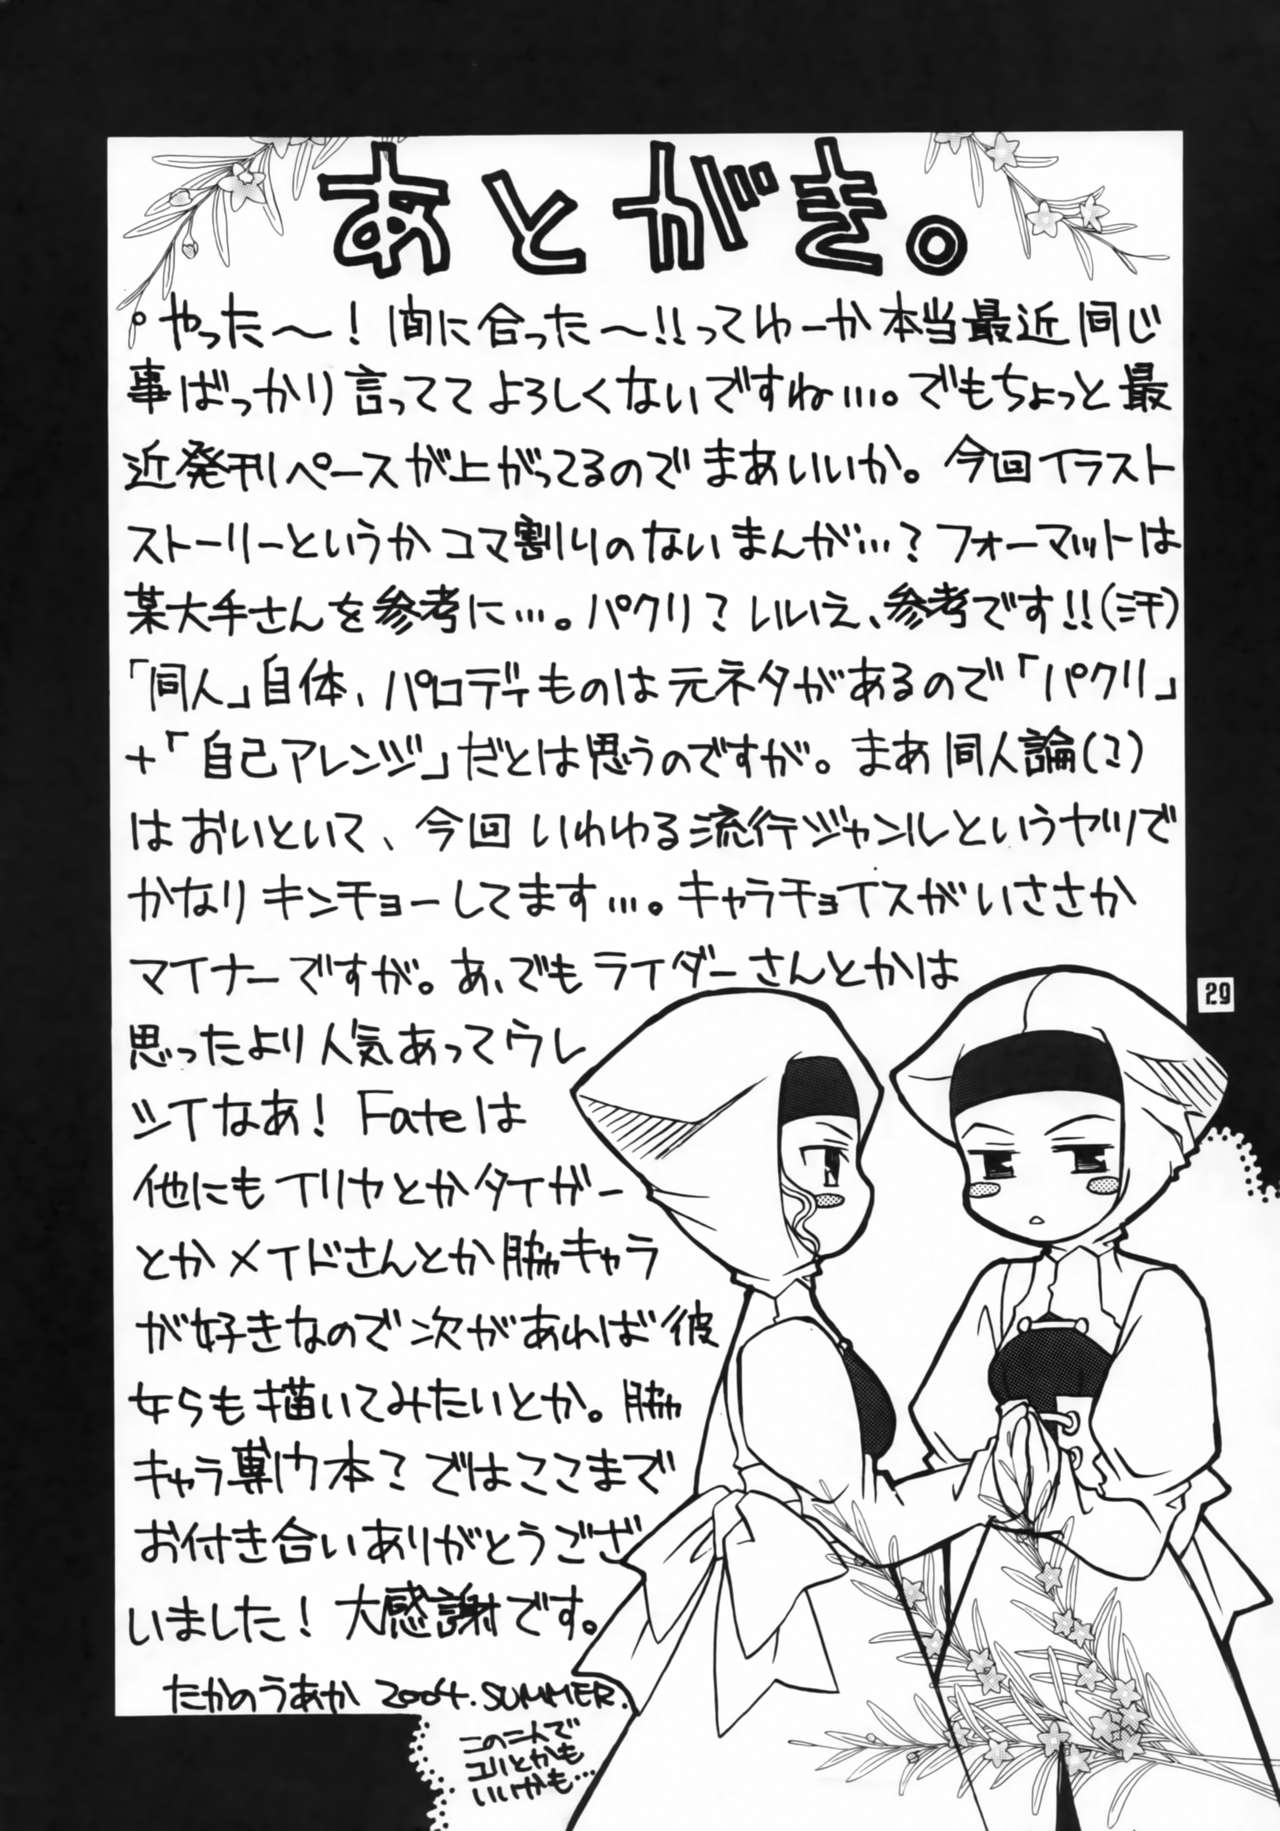 あとがき。
・やった～！間に合った～!!ってゆーか本当最近同じ
事ばっかり言っててよろしくないですね…。でもちょっと最
近発刊ペースが上がってるのでまあいいか。今回イラスト
ストーリーというかコマ割りのないまんが…？フォーマットは
某大手さんを参考に…。パクリ？いいえ、参考です!!(汗)
「同人」自体、パロディものは元ネタがあるので「パクリ」
+「自己アレンジ」だとは思うのですが。まあ同人論(？)
はおいといて、今回いわゆる流行ジャンルというヤツで
かなりキンチョーしてます…。キャラチョイスがいささか
マイナーですが。あ、でもライダーさんとかは
思ったより人気あってウレ
シイなあ！Fateは
他にもイリヤとかタイガー
とかメイドさんとか脇キャラ
が好きなので次があれば彼
女らも描いてみたいとか。脇
キャラ専門本？ではここまで
お付き合いありがとうござ
いました！大感謝です。
たかのうあか 2004.SUMMER.
この二人で
ユリとかも
いいかも…
29